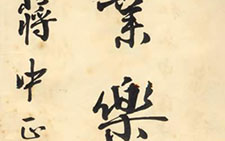 業樂
蔣中正